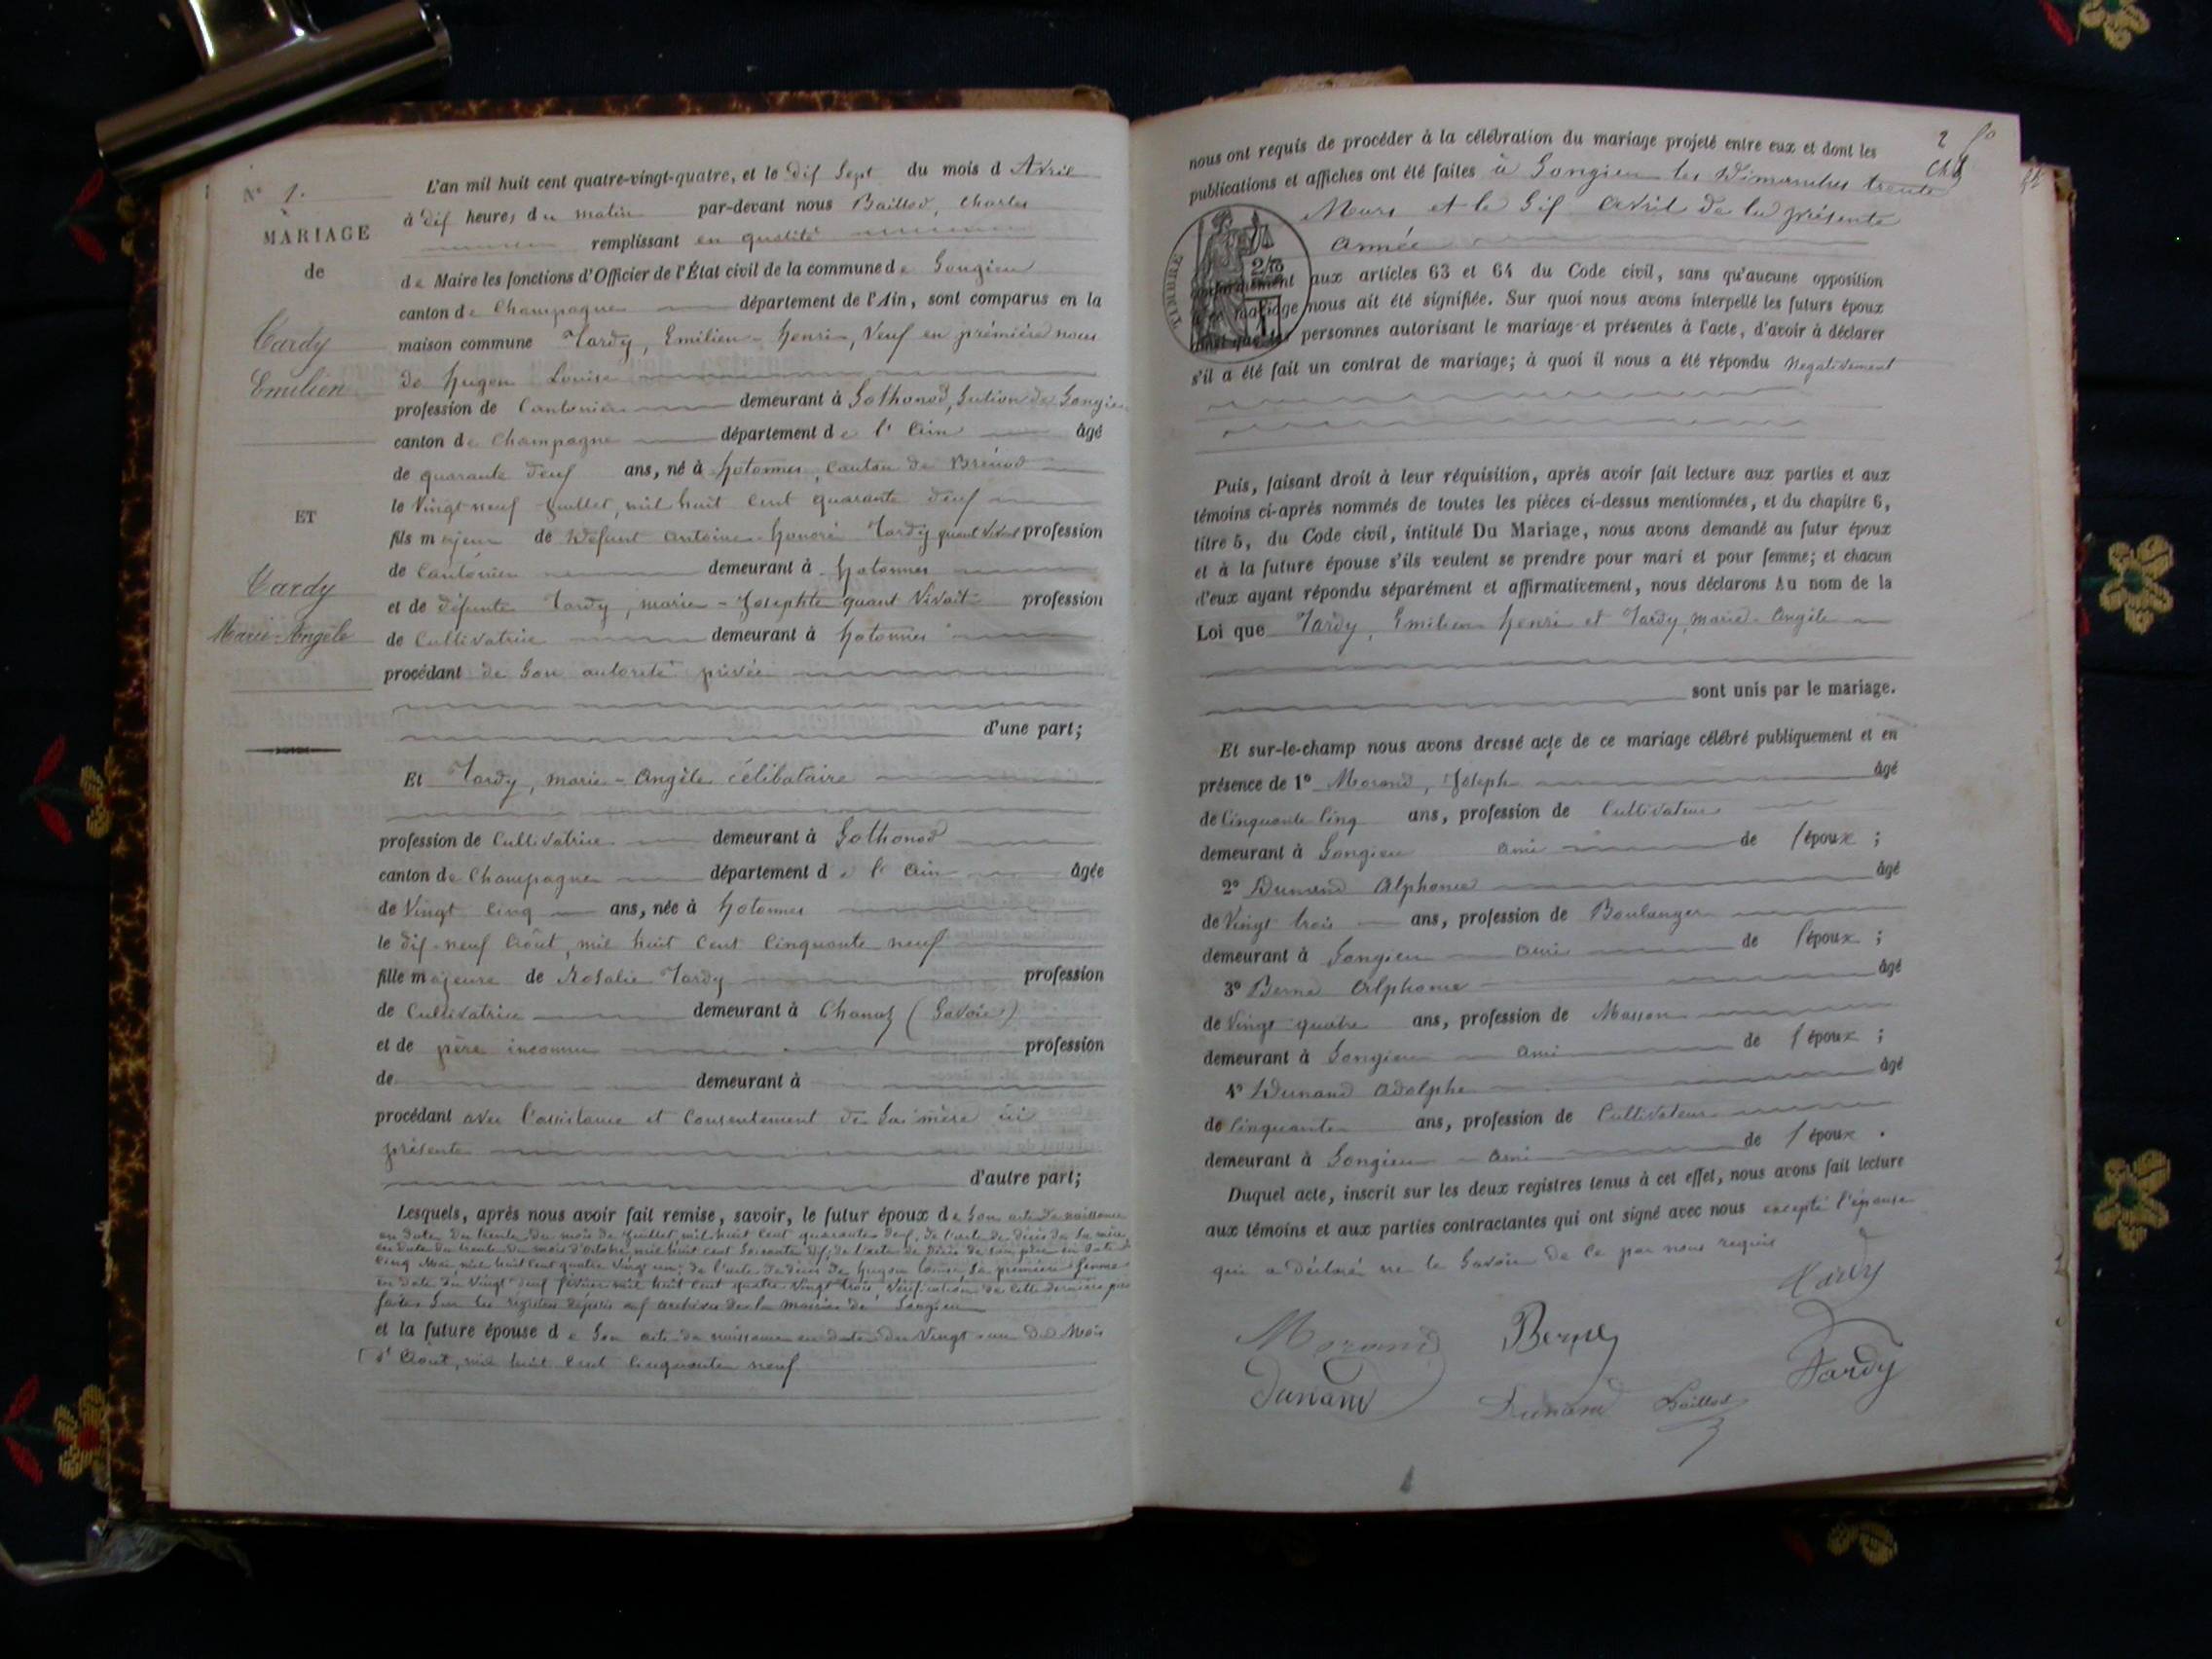 N° 1.
MARIAGE
de
Tardy
Emilien
ET
Tardy
Marie-Angèle
L'an mil huit cent quatre-vingt-quatre, et le dix Sept du mois d Avril
à dix heures du matin par-devant nous Baillod, Charles
remplissant en qualité
de Maire les fonctions d'Officier de l'État civil de la commune de Songieu
canton de Champagne département de l'Ain, sont comparus en la
maison commune Tardy, Emilien-henri, Veuf en première noces
de hugon Louise
profession de Cantonier demeurant à Sothonod, Section de Songieu
canton de Champagne département de l'Ain âgé
de quarante deux ans, né à hotonnes, Canton de Brénod
le Vingt neuf Juillet, mil huit cent quarante deux
fils majeur de Défunt Antoine-honoré Tardy quant Vivait profession
de Cantonier demeurant à hotonnes
et de défunte Tardy, marie-Josephte quant Vivait profession
de Cultivatrice demeurant à hotonnes
procédant de Son autorité privée
d'une part;
Et Tardy, marie-Angèle célibataire
profession de Cultivatrice demeurant à Sothonod
canton de Champagne département de l'Ain âgée
de Vingt Cinq ans, née à hotonnes
le dix-neuf Août, mil huit cent Cinquante neuf
fille majeure de Rosalie Tardy profession
de Cultivatrice demeurant à Chanaz (Savoie)
et de père inconnu profession
de demeurant à
procédant avec l'assistance et Consentement de Sa mère ici
présente
d'autre part;
Lesquels, après nous avoir fait remise, savoir, le futur époux de Son acte de naissance
en date du trente du mois de Juillet mil huit cent quarante deux, de l'acte de décès de Sa mère
en date du trente du mois d'octobre mil huit cent Soixante dix, de l'acte de décès de Son père en date du
Cinq Mai mil huit cent quatre Vingt un; de l'acte de décès de hugon Louise Sa première femme
en date du Vingt deux février mil huit cent quatre Vingt trois, Vérification de cette dernière pièce
faites Sur les registres déposés aux archives de la mairie de Songieu
et la future épouse de Son acte de naissance en date du Vingt un du Mois
d'Août, mil huit cent Cinquante neuf
2
nous ont requis de procéder à la célébration du mariage projeté entre eux et dont les
publications et affiches ont été faites à Songieu les Dimanches trente
Mars et le Six Avril de la présente
Année
TIMBRE
conformément aux articles 63 et 64 du Code civil, sans qu'aucune opposition
au mariage nous ait été signifiée. Sur quoi nous avons interpellé les futurs époux
ainsi que les personnes autorisant le mariage et présentes à l'acte, d'avoir à déclarer
s'il a été fait un contrat de mariage; à quoi il nous a été répondu Négativement
Puis, faisant droit à leur réquisition, après avoir fait lecture aux parties et aux
témoins ci-après nommés de toutes les pièces ci-dessus mentionnées, et du chapitre 6,
titre 5, du Code civil, intitulé Du Mariage, nous avons demandé au futur époux
et à la future épouse s'ils veulent se prendre pour mari et pour femme; et chacun
d'eux ayant répondu séparément et affirmativement, nous déclarons Au nom de la
Loi que Tardy, Emilien henri et Tardy, marie-Angèle
sont unis par le mariage.
Et sur-le-champ nous avons dressé acte de ce mariage célébré publiquement et en
présence de 1° Morand, Joseph âgé
de Cinquante Cinq ans, profession de Cultivateur
demeurant à Songieu ami de l'époux ;
2° Dunand Alphonse âgé
de Vingt trois ans, profession de Boulanger
demeurant à Songieu ami de l'époux ;
3° Berne Alphonse âgé
de Vingt quatre ans, profession de Masson
demeurant à Songieu ami de l'époux ;
4° Dunand Adolphe âgé
de Cinquante ans, profession de Cultivateur
demeurant à Songieu ami de l'époux .
Duquel acte, inscrit sur les deux registres tenus à cet effet, nous avons fait lecture
aux témoins et aux parties contractantes qui ont signé avec nous excepté l'épouse
qui a déclaré ne le Savoir de Ce par nous requis
Tardy
Morand Berne
Tardy
Dunand Dunand Baillod